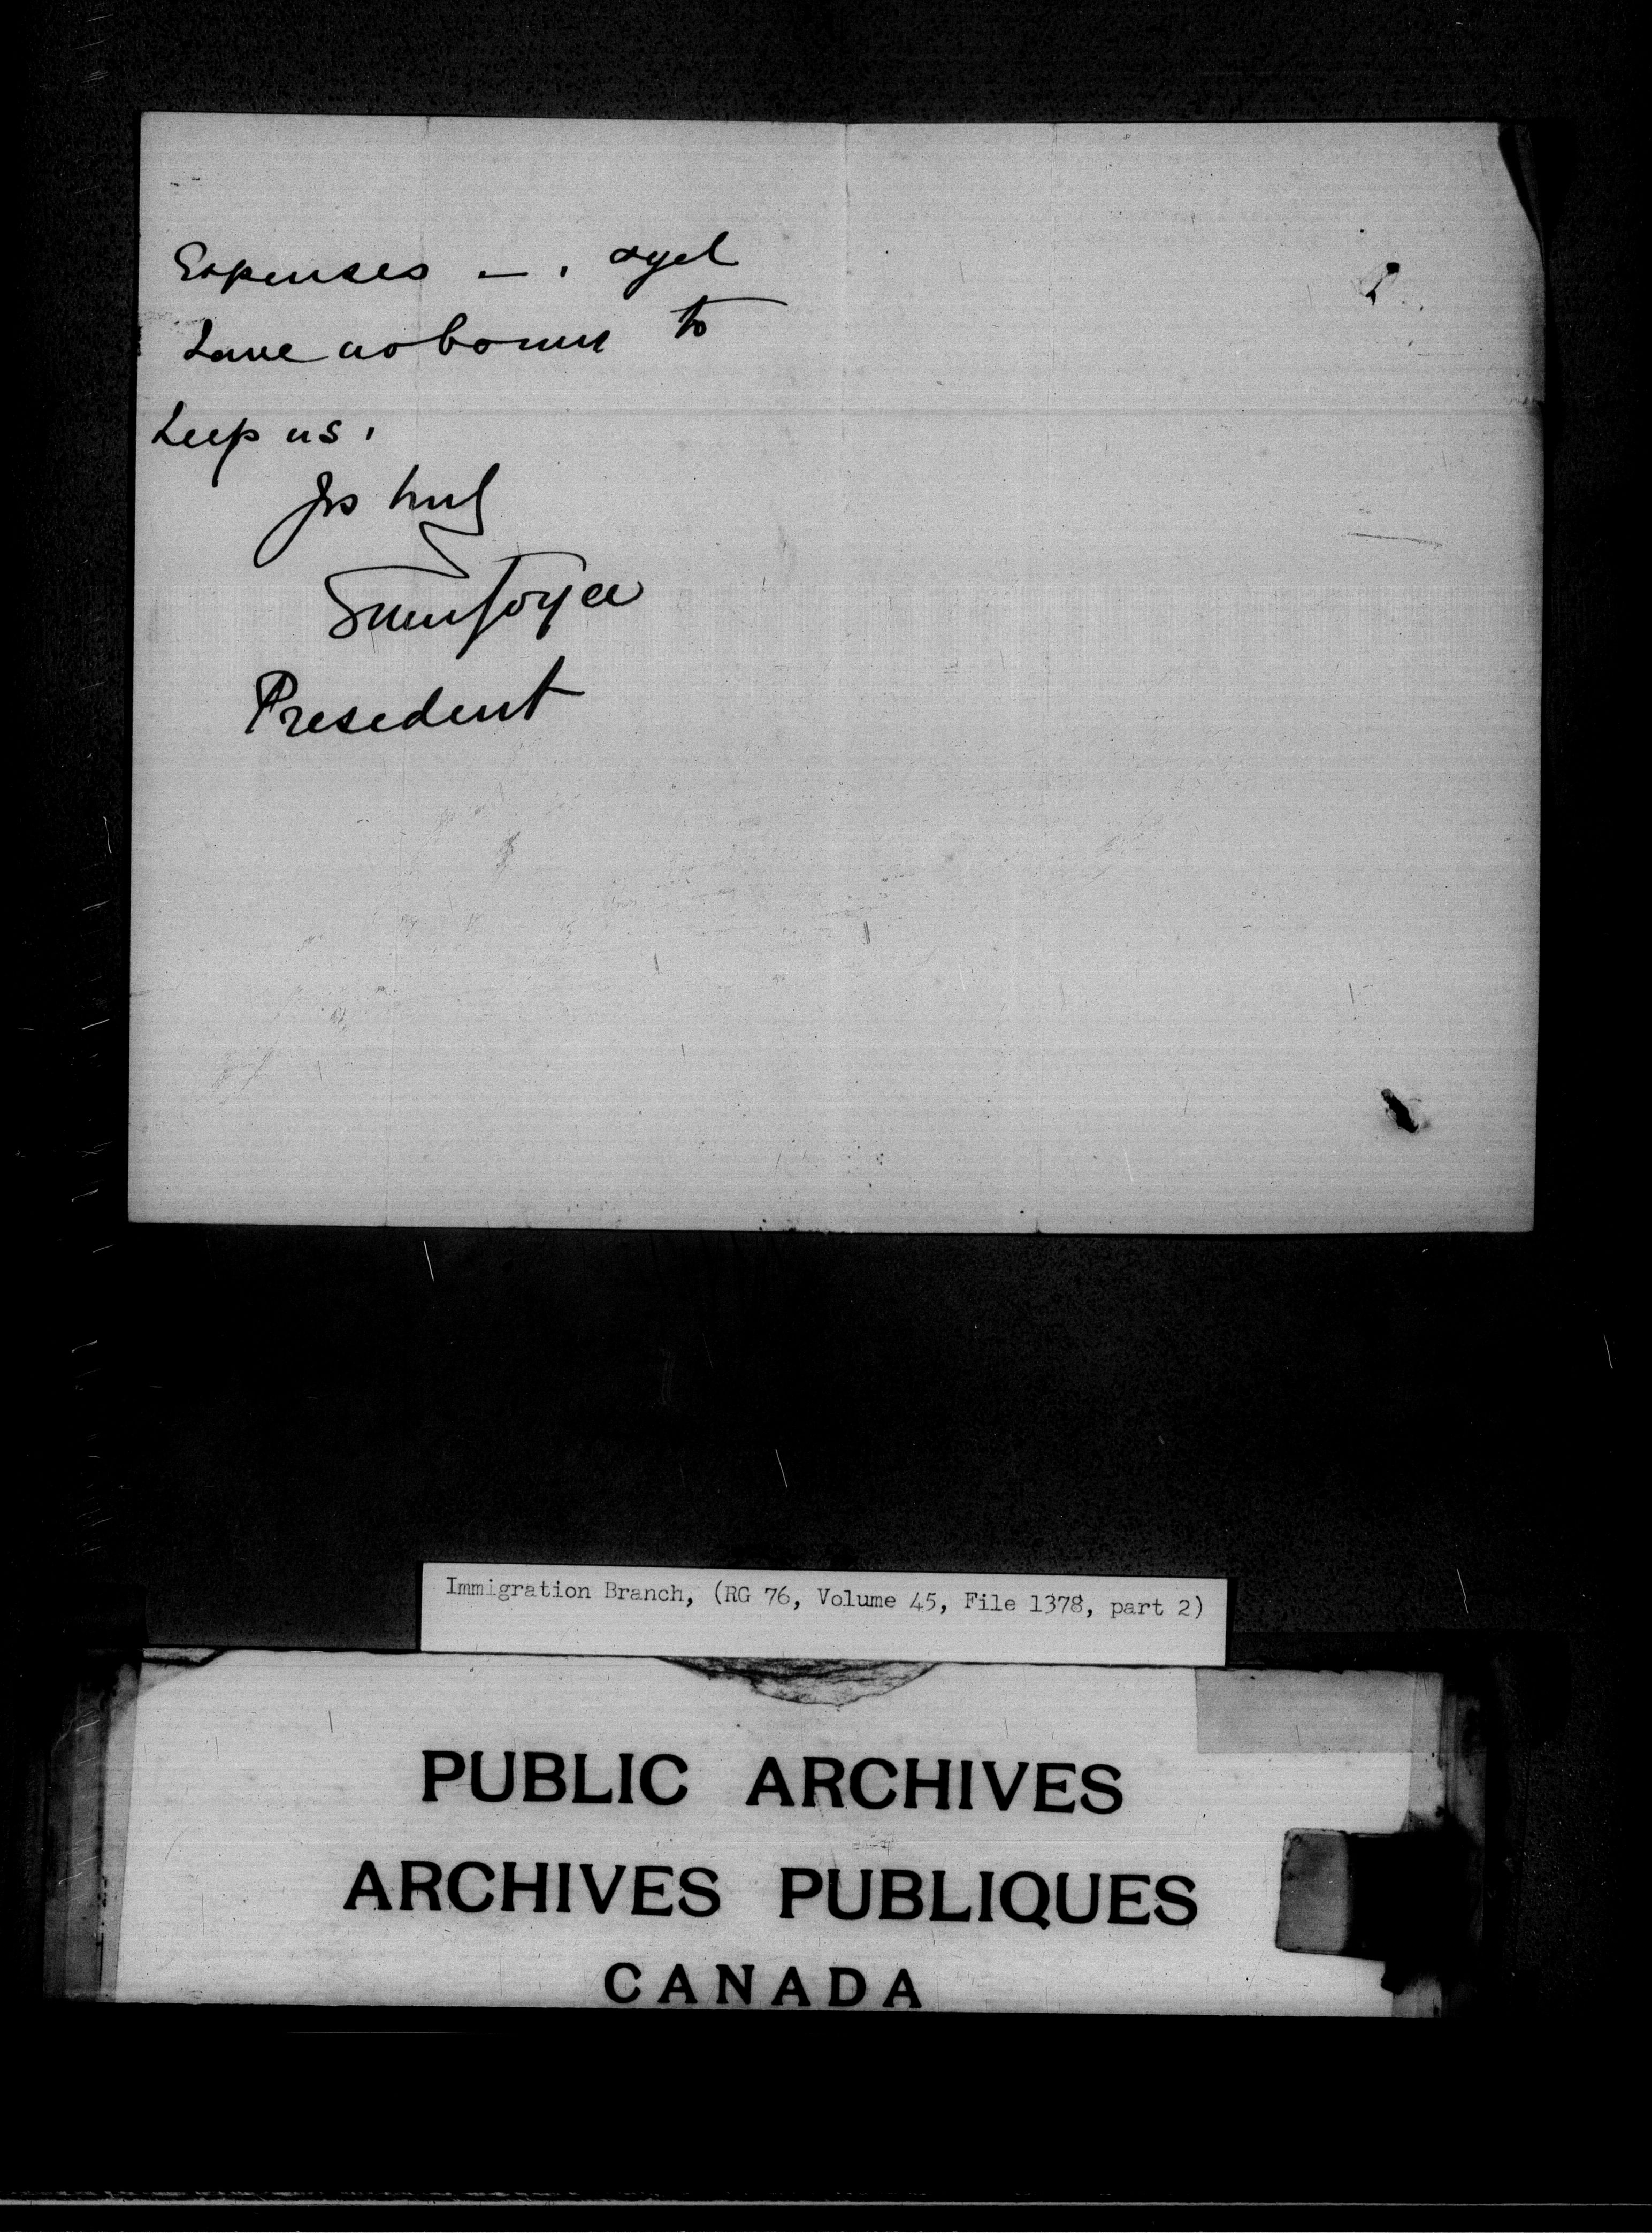 Expenses — . & yet
have no bonus to
keep us.
Yrs truly
President
Immigration Branch, (RG 76, Volume 45, File 1378, part 2)
PUBLIC ARCHIVES
ARCHIVES PUBLIQUES
CANADA